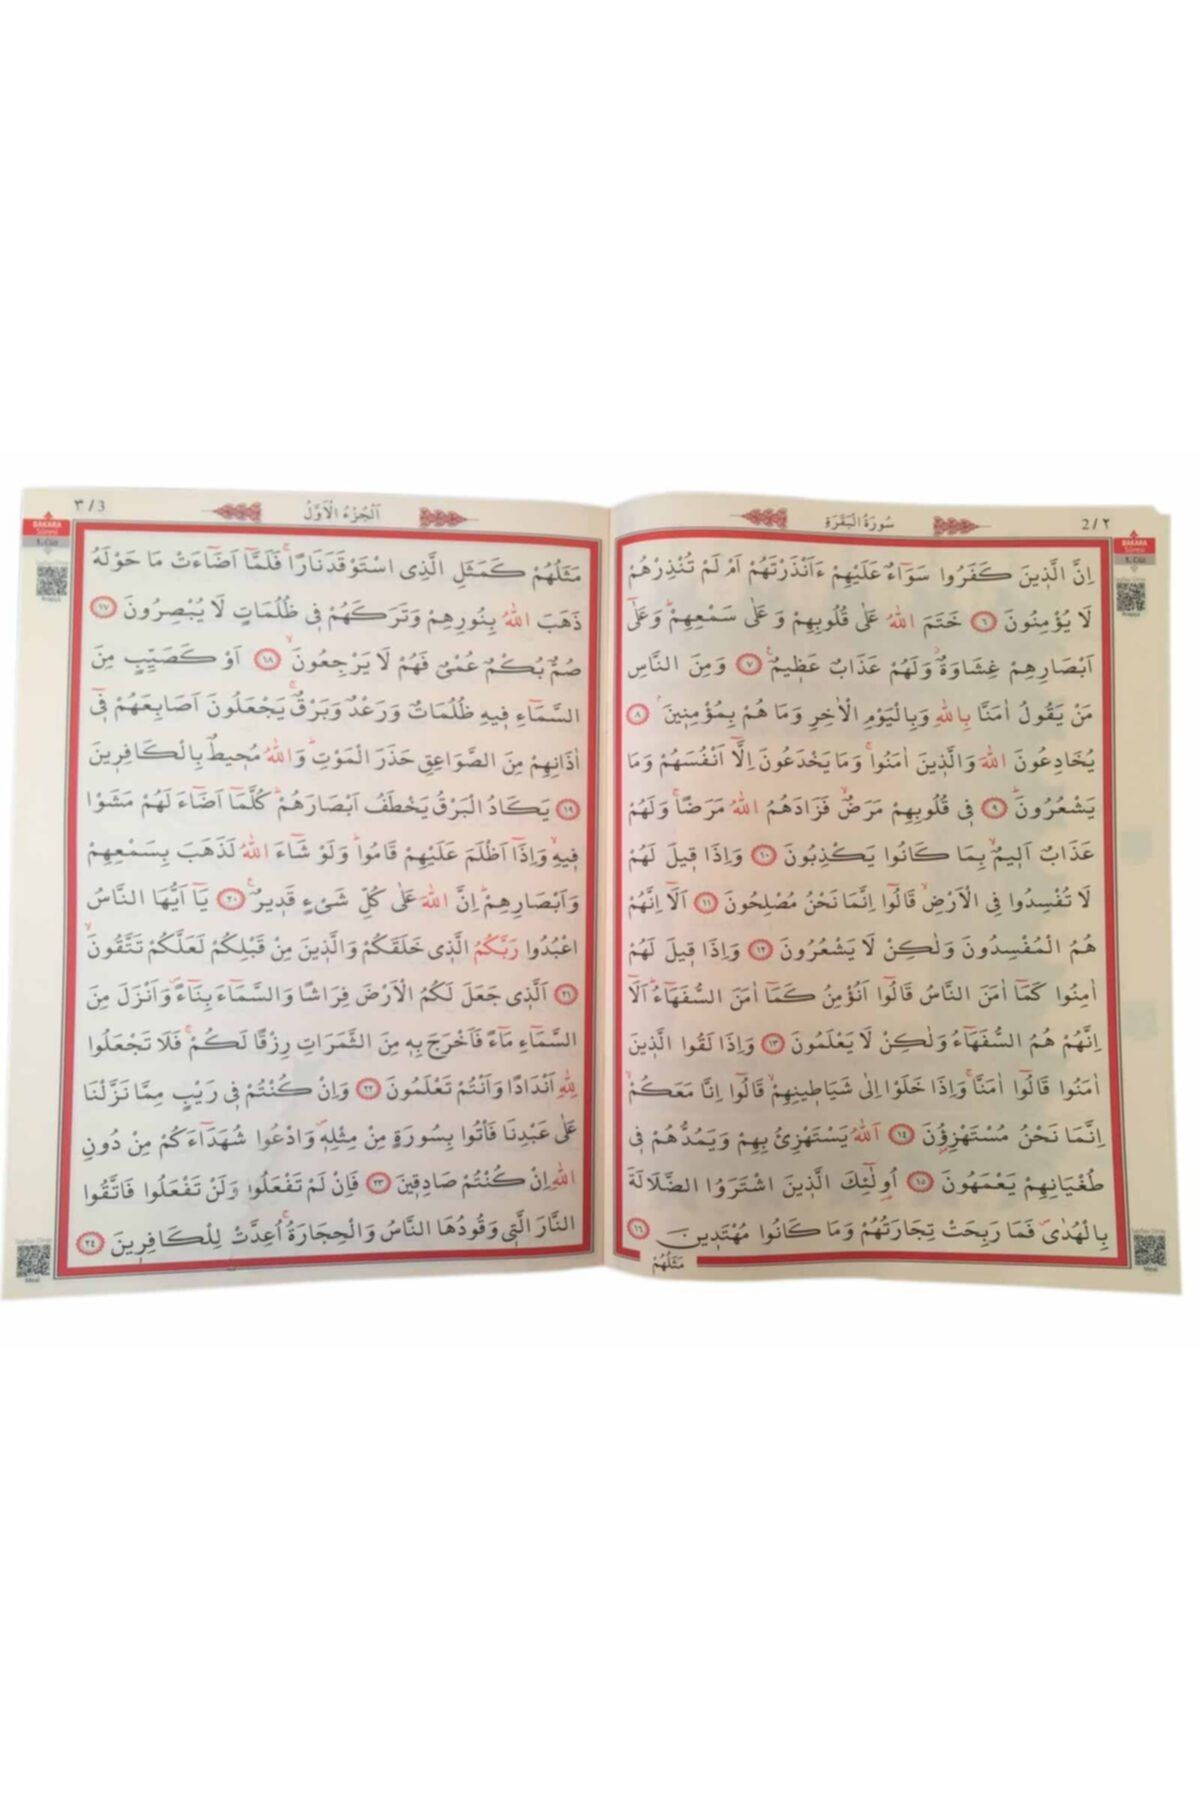 2/٢
سُورَةُ الْبَقَرَةِ
BAKARA
Sûresi
1. Cüz
اِنَّ الَّذ۪ينَ كَفَرُوا سَوَٓاءٌ عَلَيْهِمْ ءَاَنْذَرْتَهُمْ اَمْ لَمْ تُنْذِرْهُمْ
لَا يُؤْمِنُونَ ﴿٦﴾ خَتَمَ اللّٰهُ عَلٰى قُلُوبِهِمْ وَعَلٰى سَمْعِهِمْۜ وَعَلٰٓى
اَبْصَارِهِمْ غِشَاوَةٌۘ وَلَهُمْ عَذَابٌ عَظ۪يمٌ۟ ﴿٧﴾ وَمِنَ النَّاسِ
مَنْ يَقُولُ اٰمَنَّا بِاللّٰهِ وَبِالْيَوْمِ الْاٰخِرِ وَمَا هُمْ بِمُؤْمِن۪ينَۢ ﴿٨﴾
يُخَادِعُونَ اللّٰهَ وَالَّذ۪ينَ اٰمَنُواۚ وَمَا يَخْدَعُونَ اِلَّٓا اَنْفُسَهُمْ وَمَا
يَشْعُرُونَۜ ﴿٩﴾ ف۪ي قُلُوبِهِمْ مَرَضٌۙ فَزَادَهُمُ اللّٰهُ مَرَضًاۚ وَلَهُمْ
عَذَابٌ اَل۪يمٌۙ بِمَا كَانُوا يَكْذِبُونَ ﴿١٠﴾ وَاِذَا ق۪يلَ لَهُمْ
لَا تُفْسِدُوا فِي الْاَرْضِۙ قَالُٓوا اِنَّمَا نَحْنُ مُصْلِحُونَ ﴿١١﴾ اَلَٓا اِنَّهُمْ
هُمُ الْمُفْسِدُونَ وَلٰكِنْ لَا يَشْعُرُونَ ﴿١٢﴾ وَاِذَا ق۪يلَ لَهُمْ
اٰمِنُوا كَمَٓا اٰمَنَ النَّاسُ قَالُٓوا اَنُؤْمِنُ كَمَٓا اٰمَنَ السُّفَهَٓاءُۜ اَلَٓا
اِنَّهُمْ هُمُ السُّفَهَٓاءُ وَلٰكِنْ لَا يَعْلَمُونَ ﴿١٣﴾ وَاِذَا لَقُوا الَّذ۪ينَ
اٰمَنُوا قَالُٓوا اٰمَنَّاۚ وَاِذَا خَلَوْا اِلٰى شَيَاط۪ينِهِمْۙ قَالُٓوا اِنَّا مَعَكُمْۙ
اِنَّمَا نَحْنُ مُسْتَهْزِؤُ۫نَ ﴿١٤﴾ اَللّٰهُ يَسْتَهْزِئُ بِهِمْ وَيَمُدُّهُمْ ف۪ي
طُغْيَانِهِمْ يَعْمَهُونَ ﴿١٥﴾ اُو۬لٰٓئِكَ الَّذ۪ينَ اشْتَرَوُا الضَّلَالَةَ
بِالْهُدٰىۖ فَمَا رَبِحَتْ تِجَارَتُهُمْ وَمَا كَانُوا مُهْتَد۪ينَ ﴿١٦﴾
مَثَلُهُمْ
Meal
٣/3
اَلْجُزْءُ الْاَوَّلُ
BAKARA
Sûresi
1. Cüz
مَثَلُهُمْ كَمَثَلِ الَّذِي اسْتَوْقَدَ نَارًاۚ فَلَمَّٓا اَضَٓاءَتْ مَا حَوْلَهُ
ذَهَبَ اللّٰهُ بِنُورِهِمْ وَتَرَكَهُمْ ف۪ي ظُلُمَاتٍ لَا يُبْصِرُونَ ﴿١٧﴾
صُمٌّ بُكْمٌ عُمْيٌ فَهُمْ لَا يَرْجِعُونَۙ ﴿١٨﴾ اَوْ كَصَيِّبٍ مِنَ
السَّمَٓاءِ ف۪يهِ ظُلُمَاتٌ وَرَعْدٌ وَبَرْقٌۚ يَجْعَلُونَ اَصَابِعَهُمْ ف۪ٓي
اٰذَانِهِمْ مِنَ الصَّوَاعِقِ حَذَرَ الْمَوْتِۜ وَاللّٰهُ مُح۪يطٌ بِالْكَافِر۪ينَ
﴿١٩﴾ يَكَادُ الْبَرْقُ يَخْطَفُ اَبْصَارَهُمْۜ كُلَّمَٓا اَضَٓاءَ لَهُمْ مَشَوْا
ف۪يهِۙ وَاِذَٓا اَظْلَمَ عَلَيْهِمْ قَامُواۜ وَلَوْ شَٓاءَ اللّٰهُ لَذَهَبَ بِسَمْعِهِمْ
وَاَبْصَارِهِمْۜ اِنَّ اللّٰهَ عَلٰى كُلِّ شَيْءٍ قَد۪يرٌ۟ ﴿٢٠﴾ يَٓا اَيُّهَا النَّاسُ
اعْبُدُوا رَبَّكُمُ الَّذ۪ي خَلَقَكُمْ وَالَّذ۪ينَ مِنْ قَبْلِكُمْ لَعَلَّكُمْ تَتَّقُونَۙ
﴿٢١﴾ اَلَّذ۪ي جَعَلَ لَكُمُ الْاَرْضَ فِرَاشًا وَالسَّمَٓاءَ بِنَٓاءًۖ وَاَنْزَلَ مِنَ
السَّمَٓاءِ مَٓاءً فَاَخْرَجَ بِه۪ مِنَ الثَّمَرَاتِ رِزْقًا لَكُمْۚ فَلَا تَجْعَلُوا
لِلّٰهِ اَنْدَادًا وَاَنْتُمْ تَعْلَمُونَ ﴿٢٢﴾ وَاِنْ كُنْتُمْ ف۪ي رَيْبٍ مِمَّا نَزَّلْنَا
عَلٰى عَبْدِنَا فَأْتُوا بِسُورَةٍ مِنْ مِثْلِه۪ۖ وَادْعُوا شُهَدَٓاءَكُمْ مِنْ دُونِ
اللّٰهِ اِنْ كُنْتُمْ صَادِق۪ينَ ﴿٢٣﴾ فَاِنْ لَمْ تَفْعَلُوا وَلَنْ تَفْعَلُوا فَاتَّقُوا
النَّارَ الَّت۪ي وَقُودُهَا النَّاسُ وَالْحِجَارَةُۚ اُعِدَّتْ لِلْكَافِر۪ينَ ﴿٢٤﴾
Meal